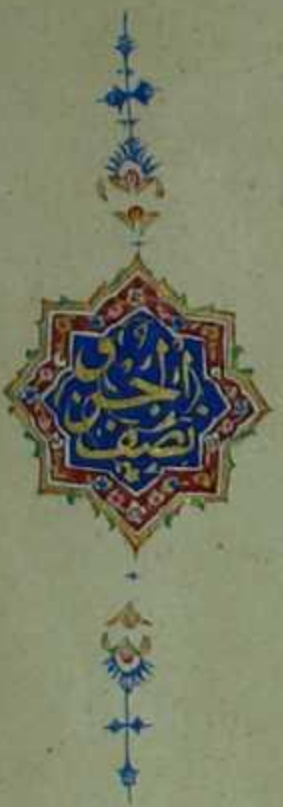 نصف
الجزو